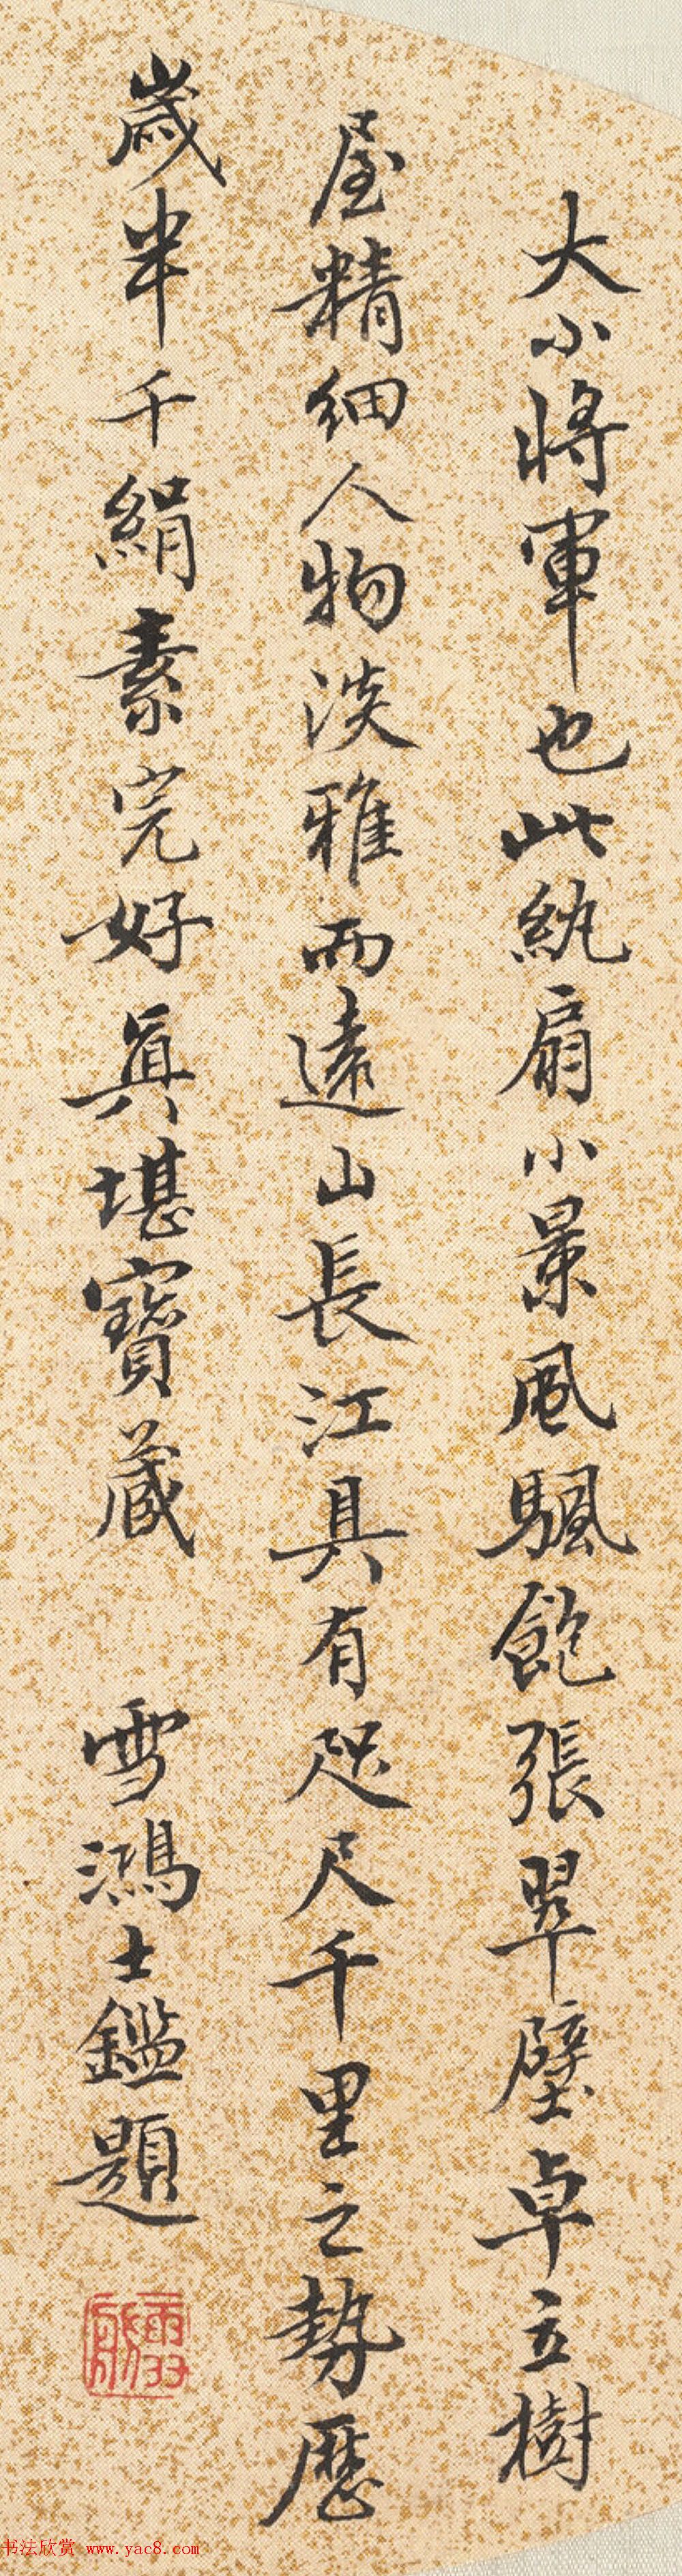 大小將軍也此紈扇小景風颿飽張翠壁卓立樹
屋精細人物淡雅而遠山長江具有咫尺千里之勢歷
歲半千絹素完好真堪寶藏 雪鴻士鑑題
书法欣赏 www.yac8.com